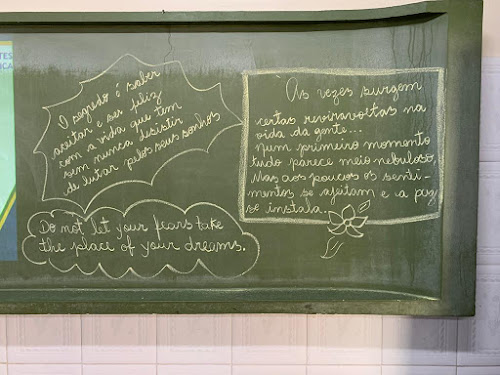 TES
ICA
O segredo é saber
aceitar e ser feliz
com a vida que tem
sem nunca desistir
de lutar pelos seus sonhos
Do not let your fears take
the place of your dreams.
Às vezes surgem
certas reviravoltas na
vida da gente...
Num primeiro momento
tudo parece meio nebuloso,
Mas aos poucos os senti-
mentos se ajeitam e a paz
se instala.